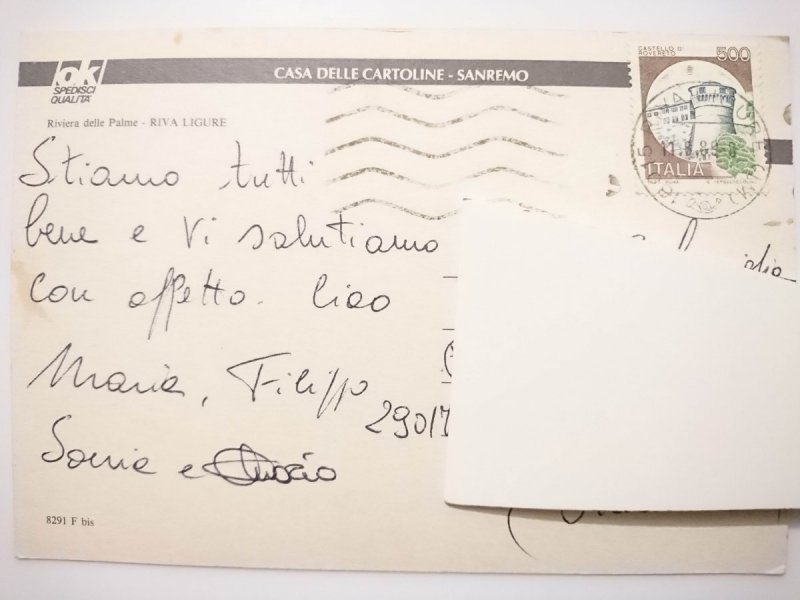 ok
SPEDISCI
QUALITÀ
CASA DELLE CARTOLINE - SANREMO
CASTELLO DI
ROVERETO
500
ITALIA
Riviera delle Palme - RIVA LIGURE
Stiamo tutti
bene e Vi salutiamo
con affetto. Ciao
Maria, Filippo
Sonia e
29017
8291 F bis